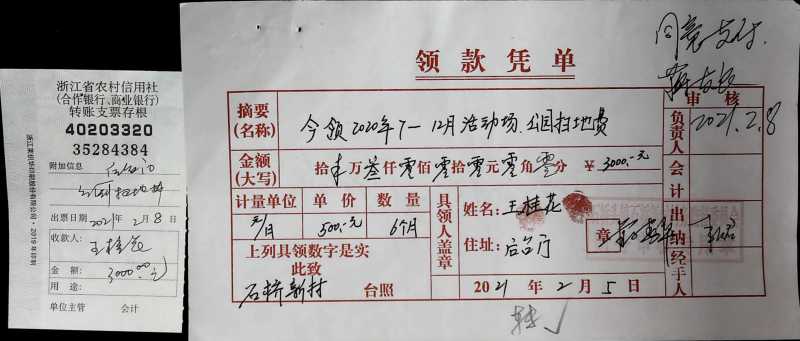 浙江省农村信用社
(合作银行、商业银行)
转账支票存根
40203320
35284384
附加信息
出票日期 2021年 2月 8日
收款人:
王桂花
金 额: 3000.00元
用 途:
单位主管 会计
同意支付.
领款凭单
审核
2021.2.8
摘要
(名称)
今领2020年7-12月活动场、公园扫地费
负责人
金额
(大写)
拾 万叁仟零佰零拾零元零角零分 ¥ 3000.-元
会计
计量单位 单价 数量
元/月 500.-元 6个月
具领人盖章
姓名: 王桂花
住址: 后台门
章
出纳
经手人
上列具领数字是实
此致
石桥新村 台照
2021 年 2 月 5 日